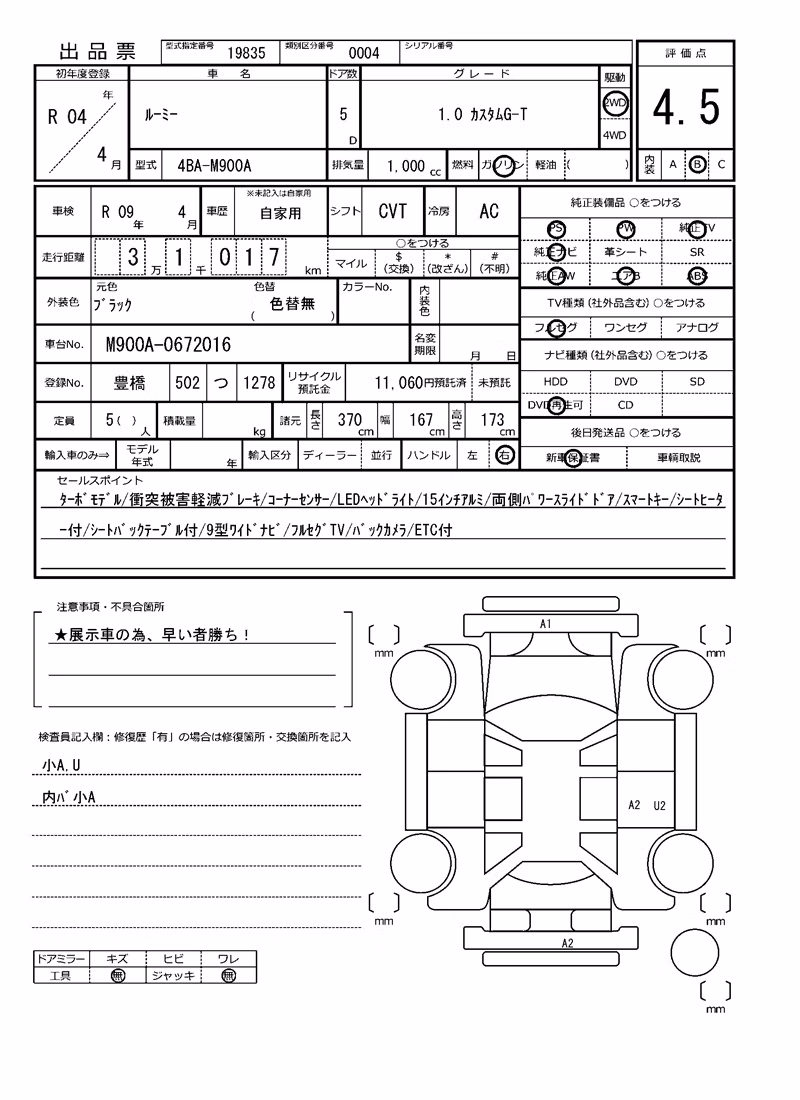 出品票 型式指定番号 19835 類別区分番号 0004 シリアル番号
評価点
4.5
内装 A B C
初年度登録 車名 ドア数 グレード 駆動
R 04 年 4 月 ルーミー 5 D 1.0 カスタムG-T 2WD
4WD
型式 4BA-M900A 排気量 1,000 cc 燃料 ガソリン 軽油 ( )
車検 R 09 年 4 月 車歴 ※未記入は自家用 自家用 シフト CVT 冷房 AC
走行距離 3 万 1 千 0 1 7 km ○をつける
マイル $ (交換) * (改ざん) # (不明)
外装色 元色 ブラック 色替 色替無 ( ) カラーNo. 内装色
車台No. M900A-0672016 名変期限 月 日
登録No. 豊橋 502 つ 1278 リサイクル預託金 11,060円預託済 未預託
定員 5( ) 人 積載量 kg 諸元 長さ 370 cm 幅 167 cm 高さ 173 cm
輸入車のみ⇒ モデル年式 年 輸入区分 ディーラー 並行 ハンドル 左 右
純正装備品 ○をつける
PS PW 純正TV
純正ナビ 革シート SR
純正AW エアB ABS
TV種類(社外品含む)○をつける
フルセグ ワンセグ アナログ
ナビ種類(社外品含む)○をつける
HDD DVD SD
DVD再生可 CD
後日発送品 ○をつける
新車保証書 車輌取説
セールスポイント
ターボモデル/衝突被害軽減ブレーキ/コーナーセンサー/LEDヘッドライト/15インチアルミ/両側パワースライドドア/スマートキー/シートヒータ
ー付/シートバックテーブル付/9型ワイドナビ/フルセグTV/バックカメラ/ETC付
注意事項・不具合箇所
★展示車の為、早い者勝ち!
検査員記入欄：修復歴「有」の場合は修復箇所・交換箇所を記入
小A,U
内バ小A
ドアミラー キズ ヒビ ワレ
工具 無 ジャッキ 無
A1
mm mm
A2 U2
mm mm
A2
mm